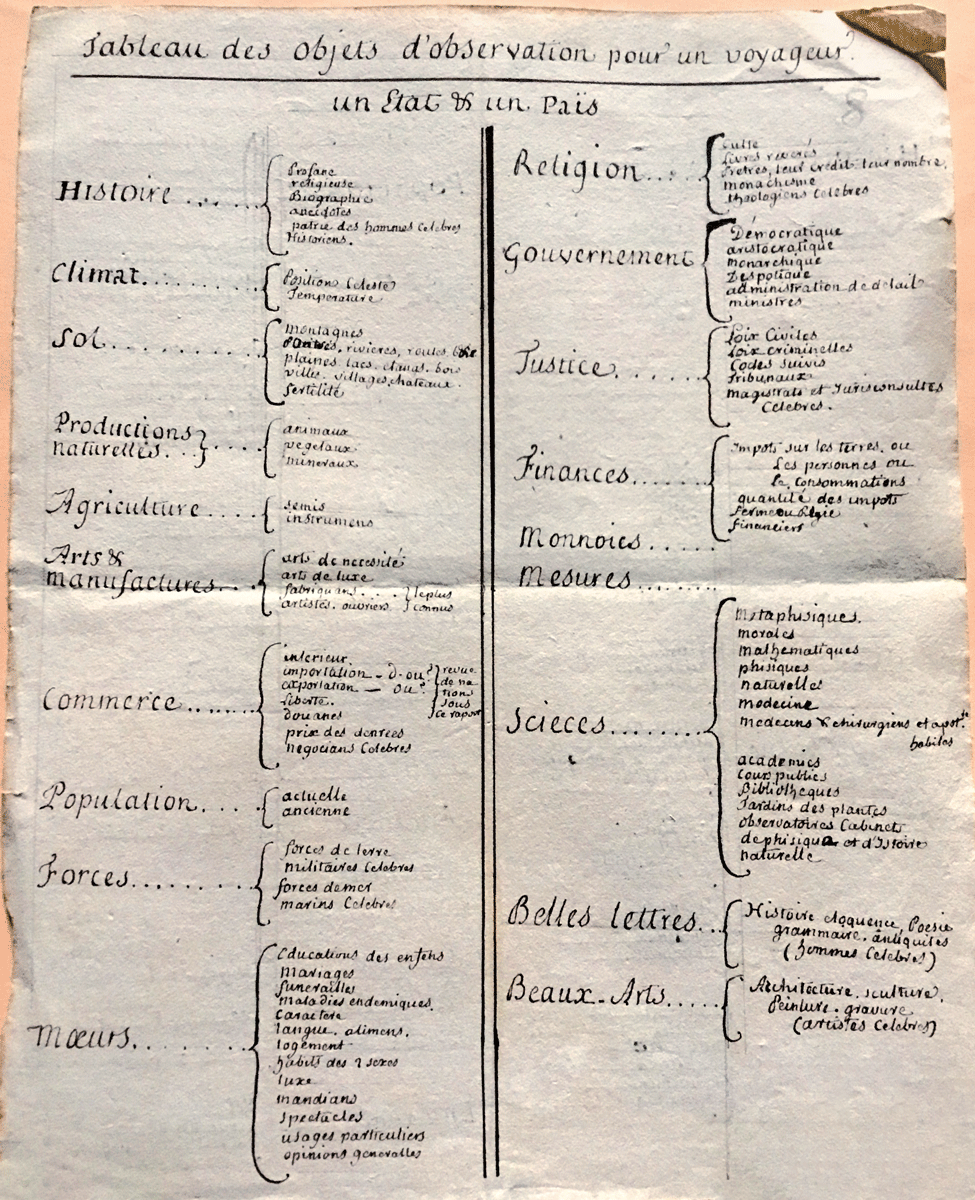 Tableau des Objets d'observation pour un voyageur.
un Etat & un Païs
Histoire ....
Profane
religieuse
Biographie
anecdotes
patrie des hommes Celebres
Historiens.
Climat.......
Position Celeste
Temperature
Sol.........
montagnes
rivieres, routes
plaines, lacs, etangs, bois
villes, villages, chateaux.
fertilité
Productions
naturelles. ....
animaux
vegetaux
mineraux
Agriculture ....
semis
instrumens
Arts &
manufactures....
arts de necessité
arts de luxe
fabriquans .... le plus
artistes, ouvriers connus
Commerce ......
interieur
importation – d'ou?
exportation — ou?
liberté.
douanes
prix des denrées
negocians Celebres
revue
de na
tions
sous
ce raport
Population. ...
actuelle
ancienne
Forces.........
forces de terre
militaires Celebres
forces de mer
marins Celebres
Mœurs. ........
Educations des enfens
mariages
funerailles
maladies endemiques.
Caractere
langue, alimens.
logement
habits des 2 sexes
luxe
mandians
spectacles
usages particuliers
opinions generalles
Religion....
Culte
Livres reverés
Pretres, leur Credit, leur nombre,
monachisme
theologiens Celebres
Gouvernement
Démocratique
aristocratique
monarchique
Despotique
administration de detail
ministres
Justice. .....
Loix Civiles
Loix criminelles
Codes suivis
Tribunaux
magistrats et Jurisconsultes
Celebres.
Finances......
Impots sur les terres, ou
Les personnes ou
Le, Consommations
quantité des impots
ferme ou Régie
financiers
Monnoies .....
Mesures........
Scieces........
Metaphisiques.
morales
mathematiques
phisiques
naturelles
medecine
medecins & chirurgiens et apot.
habiles
academies
Cour publics
Bibliotheques
Jardins des plantes
observatoires Cabinets
de phisique et d'Istoire
naturelle
Belles lettres...
Histoire eloquence, Poesie
grammaire, antiquités
(hommes Celebres)
Beaux-Arts.....
Architecture, sculture,
Peinture, gravure
(artistes Celebres)